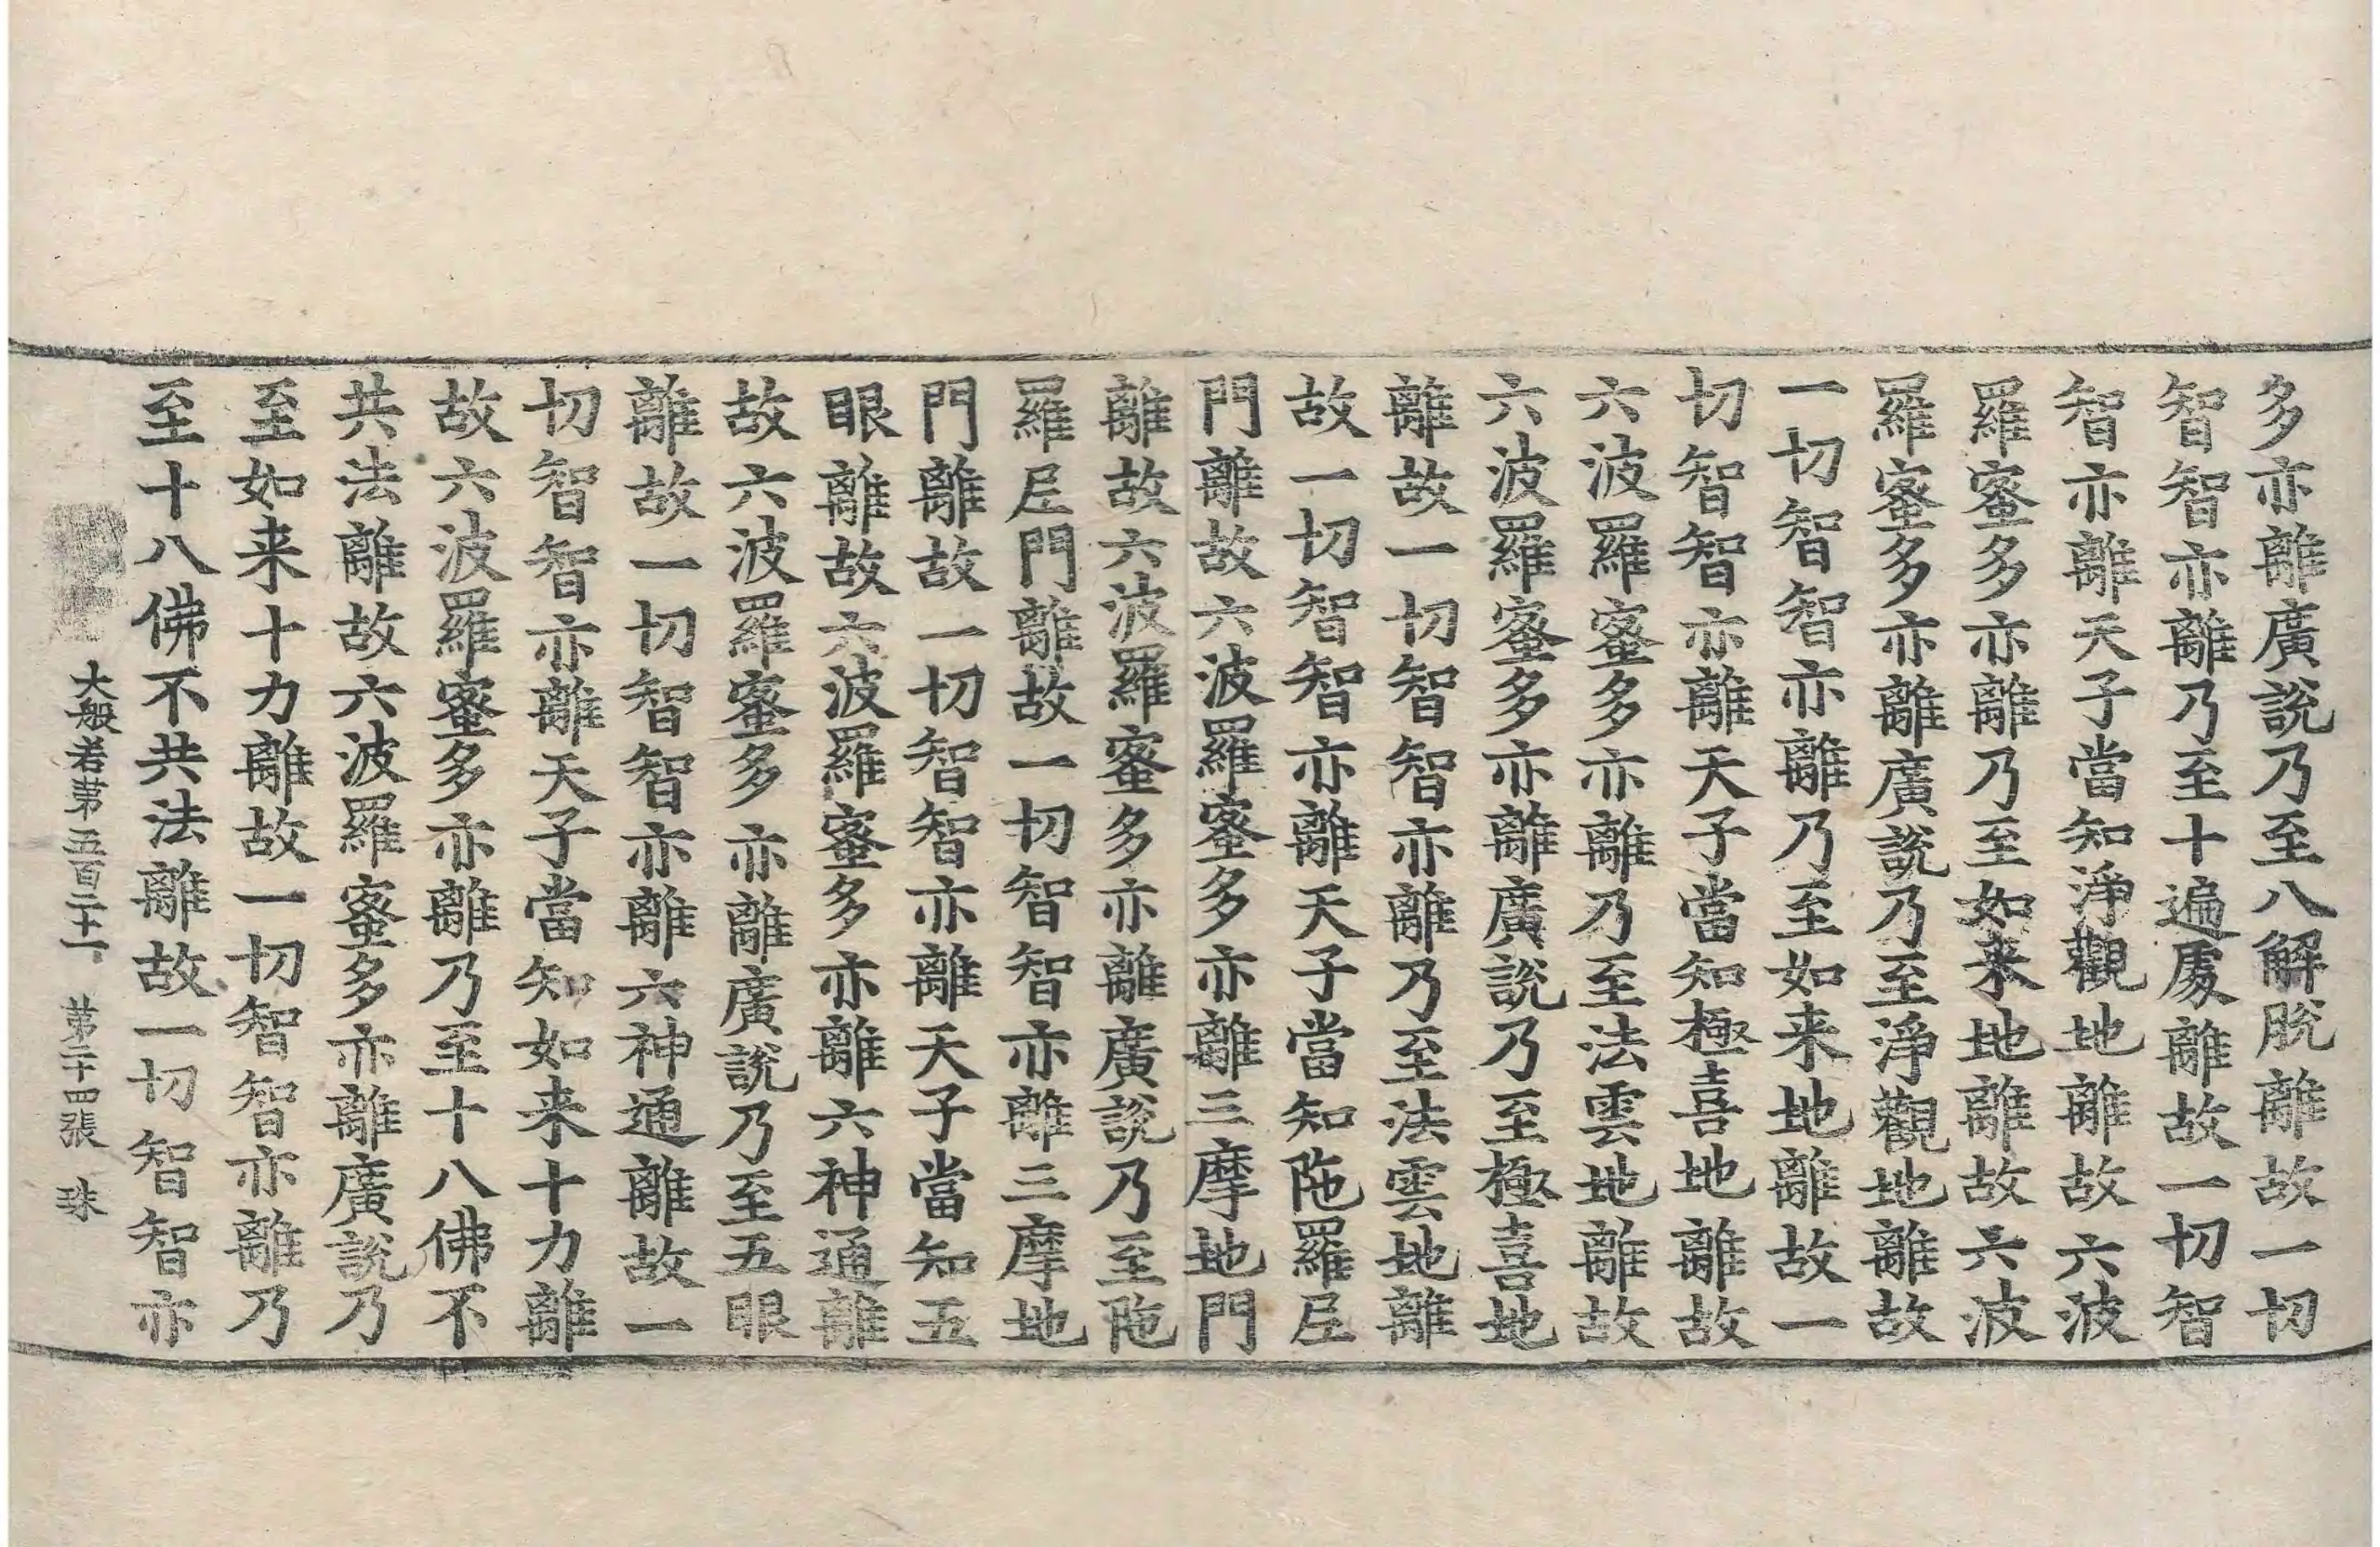 多亦離廣説乃至八解脫離故一切
智智亦離乃至十遍處離故一切智
智亦離天子當知淨觀地離故六波
羅蜜多亦離乃至如来地離故六波
羅蜜多亦離廣説乃至淨觀地離故
一切智智亦離乃至如来地離故一
切智智亦離天子當知極喜地離故
六波羅蜜多亦離乃至法雲地離故
六波羅蜜多亦離廣説乃至極喜地
離故一切智智亦離乃至法雲地離
故一切智智亦離天子當知陁羅尼
門離故六波羅蜜多亦離三摩地門
離故六波羅蜜多亦離廣説乃至陁
羅尼門離故一切智智亦離三摩地
門離故一切智智亦離天子當知五
眼離故六波羅蜜多亦離六神通離
故六波羅蜜多亦離廣説乃至五眼
離故一切智智亦離六神通離故一
切智智亦離天子當知如来十力離
故六波羅蜜多亦離乃至十八佛不
共法離故六波羅蜜多亦離廣説乃
至如来十力離故一切智智亦離乃
至十八佛不共法離故一切智智亦
大般若第五百二十一 第二十四張 珠